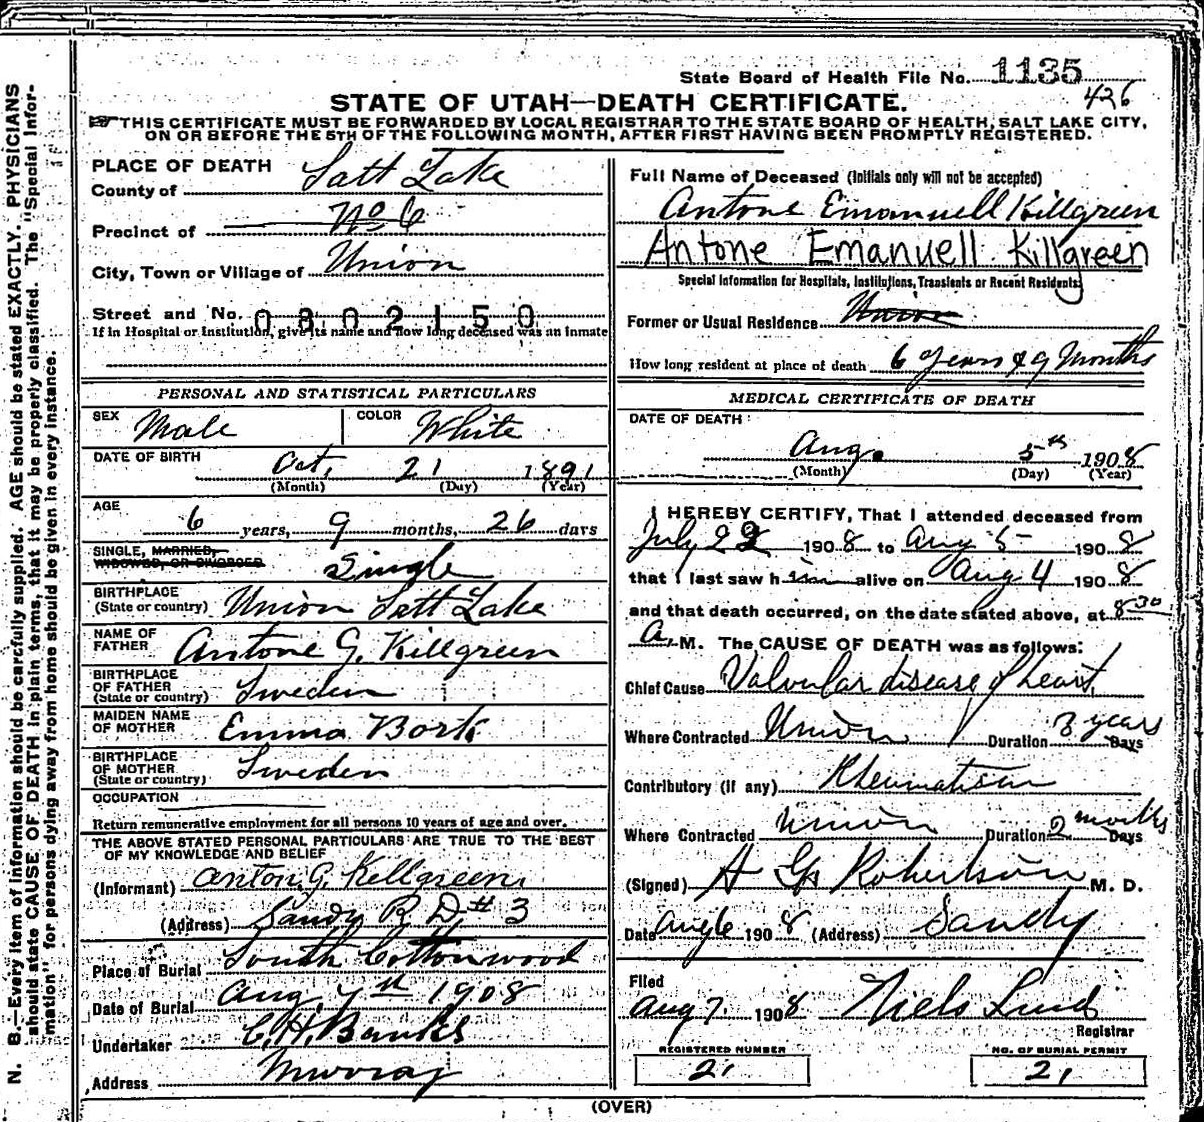 State Board of Health File No. 1135
426
STATE OF UTAH—DEATH CERTIFICATE.
THIS CERTIFICATE MUST BE FORWARDED BY LOCAL REGISTRAR TO THE STATE BOARD OF HEALTH, SALT LAKE CITY,
ON OR BEFORE THE 5TH OF THE FOLLOWING MONTH, AFTER FIRST HAVING BEEN PROMPTLY REGISTERED.
N. B.—Every item of information should be carefully supplied. AGE should be stated EXACTLY. PHYSICIANS
should state CAUSE OF DEATH in plain terms, that it may be properly classified. The "Special Infor-
mation" for persons dying away from home should be given in every instance.
PLACE OF DEATH
County of Salt Lake
Precinct of No 6
City, Town or Village of Union
Street and No. 0302150
If in Hospital or Institution, give its name and how long deceased was an inmate
PERSONAL AND STATISTICAL PARTICULARS
SEX Male COLOR White
DATE OF BIRTH Oct, 21 1891
(Month) (Day) (Year)
AGE
6 years, 9 months, 26 days
SINGLE, MARRIED,
WIDOWED, OR DIVORCED Single
BIRTHPLACE
(State or country) Union Salt Lake
NAME OF
FATHER Antone G. Killgreen
BIRTHPLACE
OF FATHER
(State or country) Sweden
MAIDEN NAME
OF MOTHER Emma Bork
BIRTHPLACE
OF MOTHER
(State or country) Sweden
OCCUPATION
Return remunerative employment for all persons 10 years of age and over.
THE ABOVE STATED PERSONAL PARTICULARS ARE TRUE TO THE BEST
OF MY KNOWLEDGE AND BELIEF
(Informant) Anton. G. Kellgreen
(Address) Sandy R. D. # 3
Place of Burial South Cottonwood
Date of Burial Aug 7th 1908
Undertaker C. H. Banks
Address Murray
Full Name of Deceased (Initials only will not be accepted)
Antone Emanuell Killgreen
Antone Emanuell Killgreen
Special Information for Hospitals, Institutions, Transients or Recent Residents
Former or Usual Residence Union
How long resident at place of death 6 years & 9 Months
MEDICAL CERTIFICATE OF DEATH
DATE OF DEATH
Aug. 5th 1908
(Month) (Day) (Year)
I HEREBY CERTIFY, That I attended deceased from
July 22 1908 to Aug 5 1908
that I last saw him alive on Aug 4 1908
and that death occurred, on the date stated above, at 8 30
A. M. The CAUSE OF DEATH was as follows:
Chief Cause Valvular disease of heart
Where Contracted Union Duration 3 years Days
Contributory (if any) Rheumatism
Where Contracted Union Duration 2 months Days
(Signed) A G Robertson M. D.
Date Aug 6 1908 (Address) Sandy
Filed
Aug 7. 1908 Niels Lind
Registrar
REGISTERED NUMBER
21
NO. OF BURIAL PERMIT
21
(OVER)